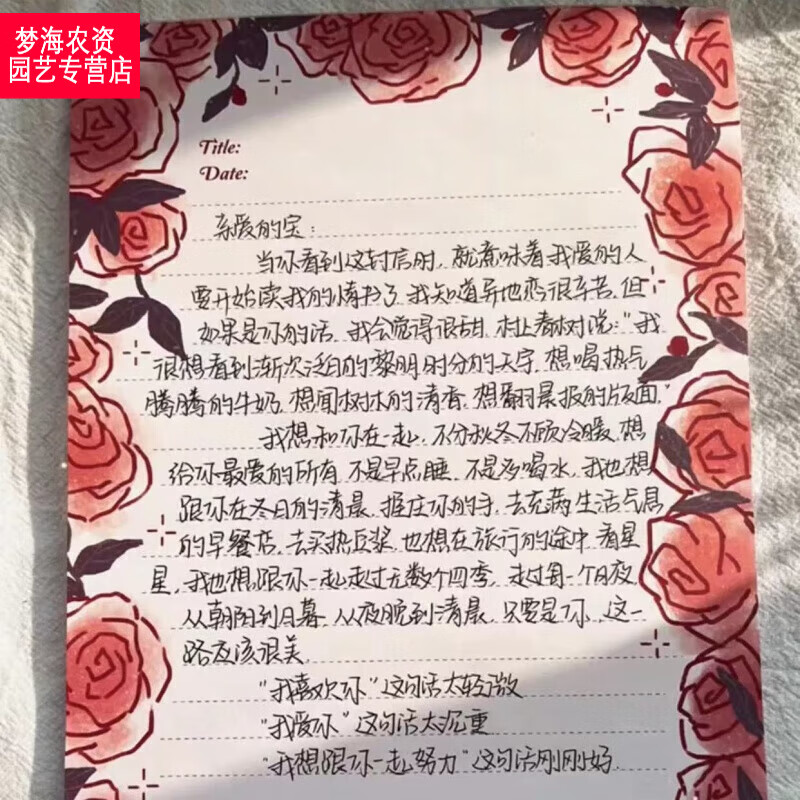 梦海农资
园艺专营店
Title:
Date:
亲爱的宝：
当你看到这封信时，就意味着我爱的人
要开始读我的情书了。我知道异地恋很辛苦，但
如果是你的话，我会觉得很甜。村上春树说："我
很想看到渐次泛白的黎明时分的天宇，想喝热气
腾腾的牛奶，想闻树木的清香，想翻晨报的版面。"
我想和你在一起，不分秋冬不顾冷暖，想
给你最爱的所有，不是早点睡，不是多喝水，我也想
跟你在冬日的清晨，握住你的手，去充满生活气息
的早餐店，去买热豆浆，也想在旅行的途中看星
星，我也想跟你一起走过无数个四季，走过每一个日夜，
从朝阳到日暮，从夜晚到清晨，只要是你，这一
路应该很美
"我喜欢你"这句话太轻微
"我爱你"这句话太沉重
"我想跟你一起努力"这句话刚刚好